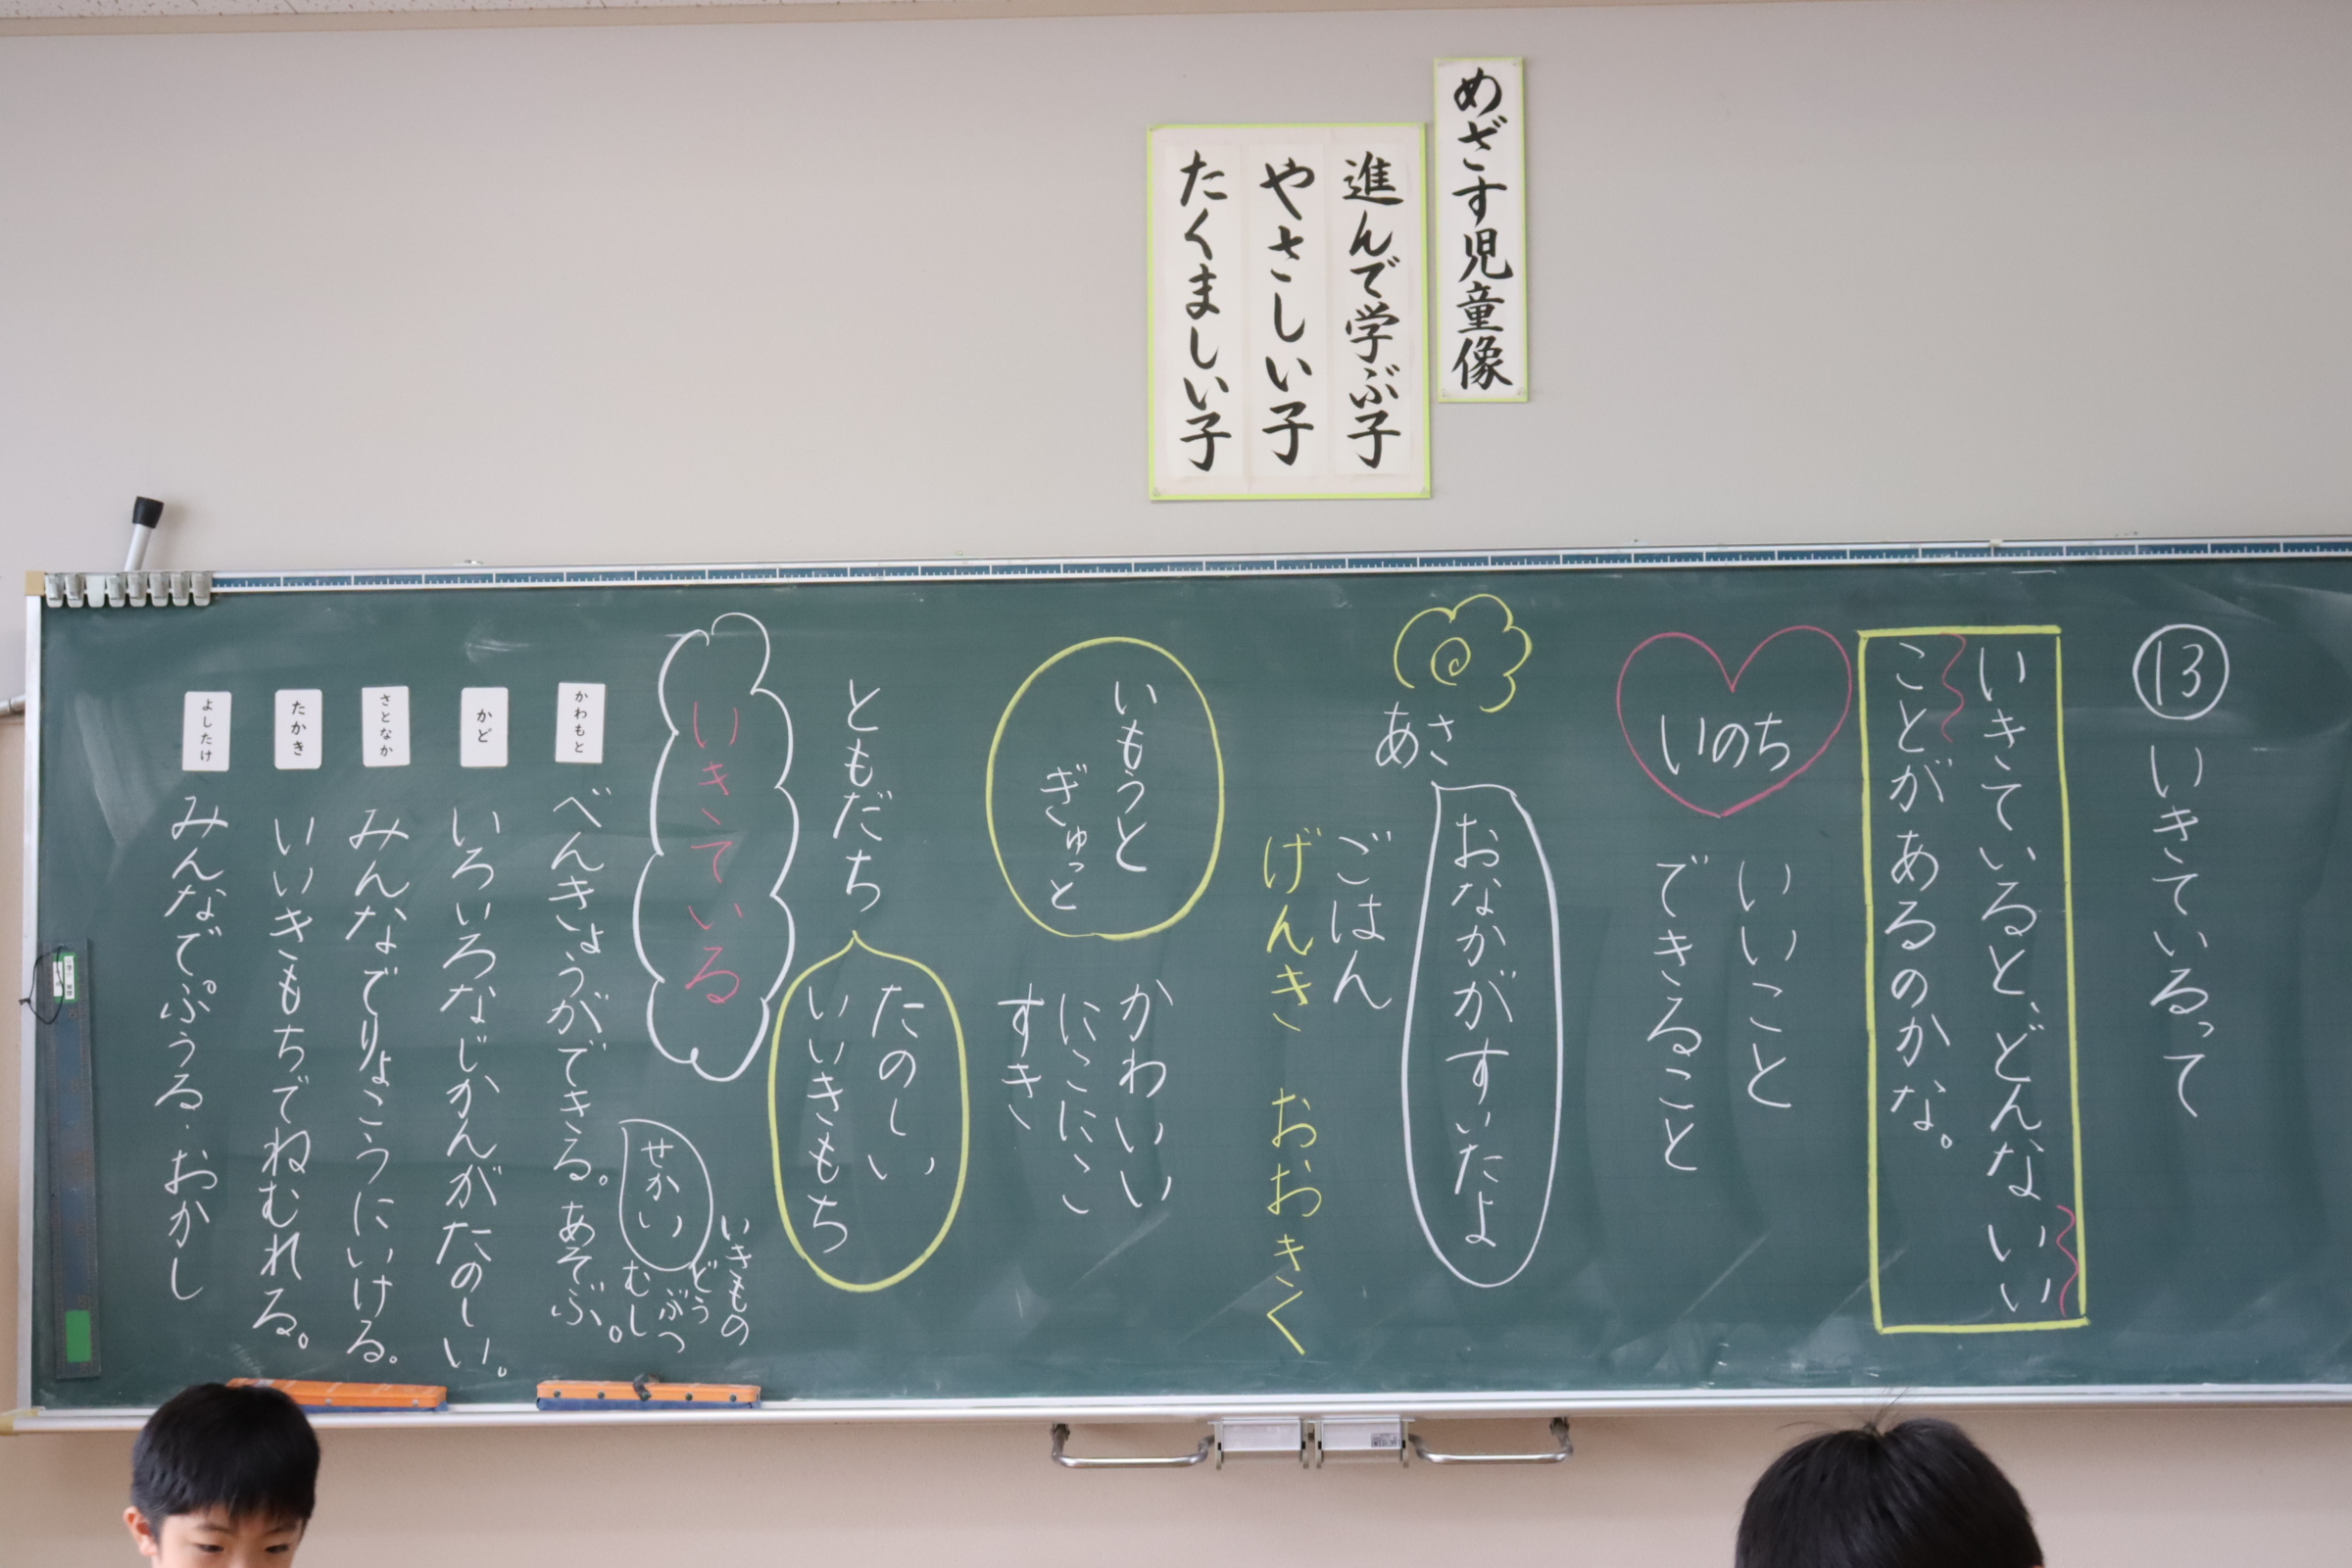 めざす児童像
進んで学ぶ子
やさしい子
たくましい子
⑬ いきているって
いきていると、どんないい
ことがあるのかな。
いのち
いいこと
できること
あさ
おなかがすいたよ
ごはん
げんき おおきく
いもうと
ぎゅっと
かわいい
にこにこ
すき
ともだち
たのしい
いいきもち
いきている
いきもの
どうぶつ
むし
せかい
かわもと
べんきょうができる。あそぶ。
かど
いろいろなじかんがたのしい。
さとなか
みんなでりょこうにいける。
たかき
いいきもちでねむれる。
よしたけ
みんなで。ぷうる・おかし